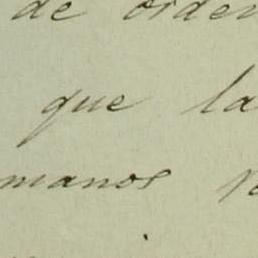 de orden
que la
manos